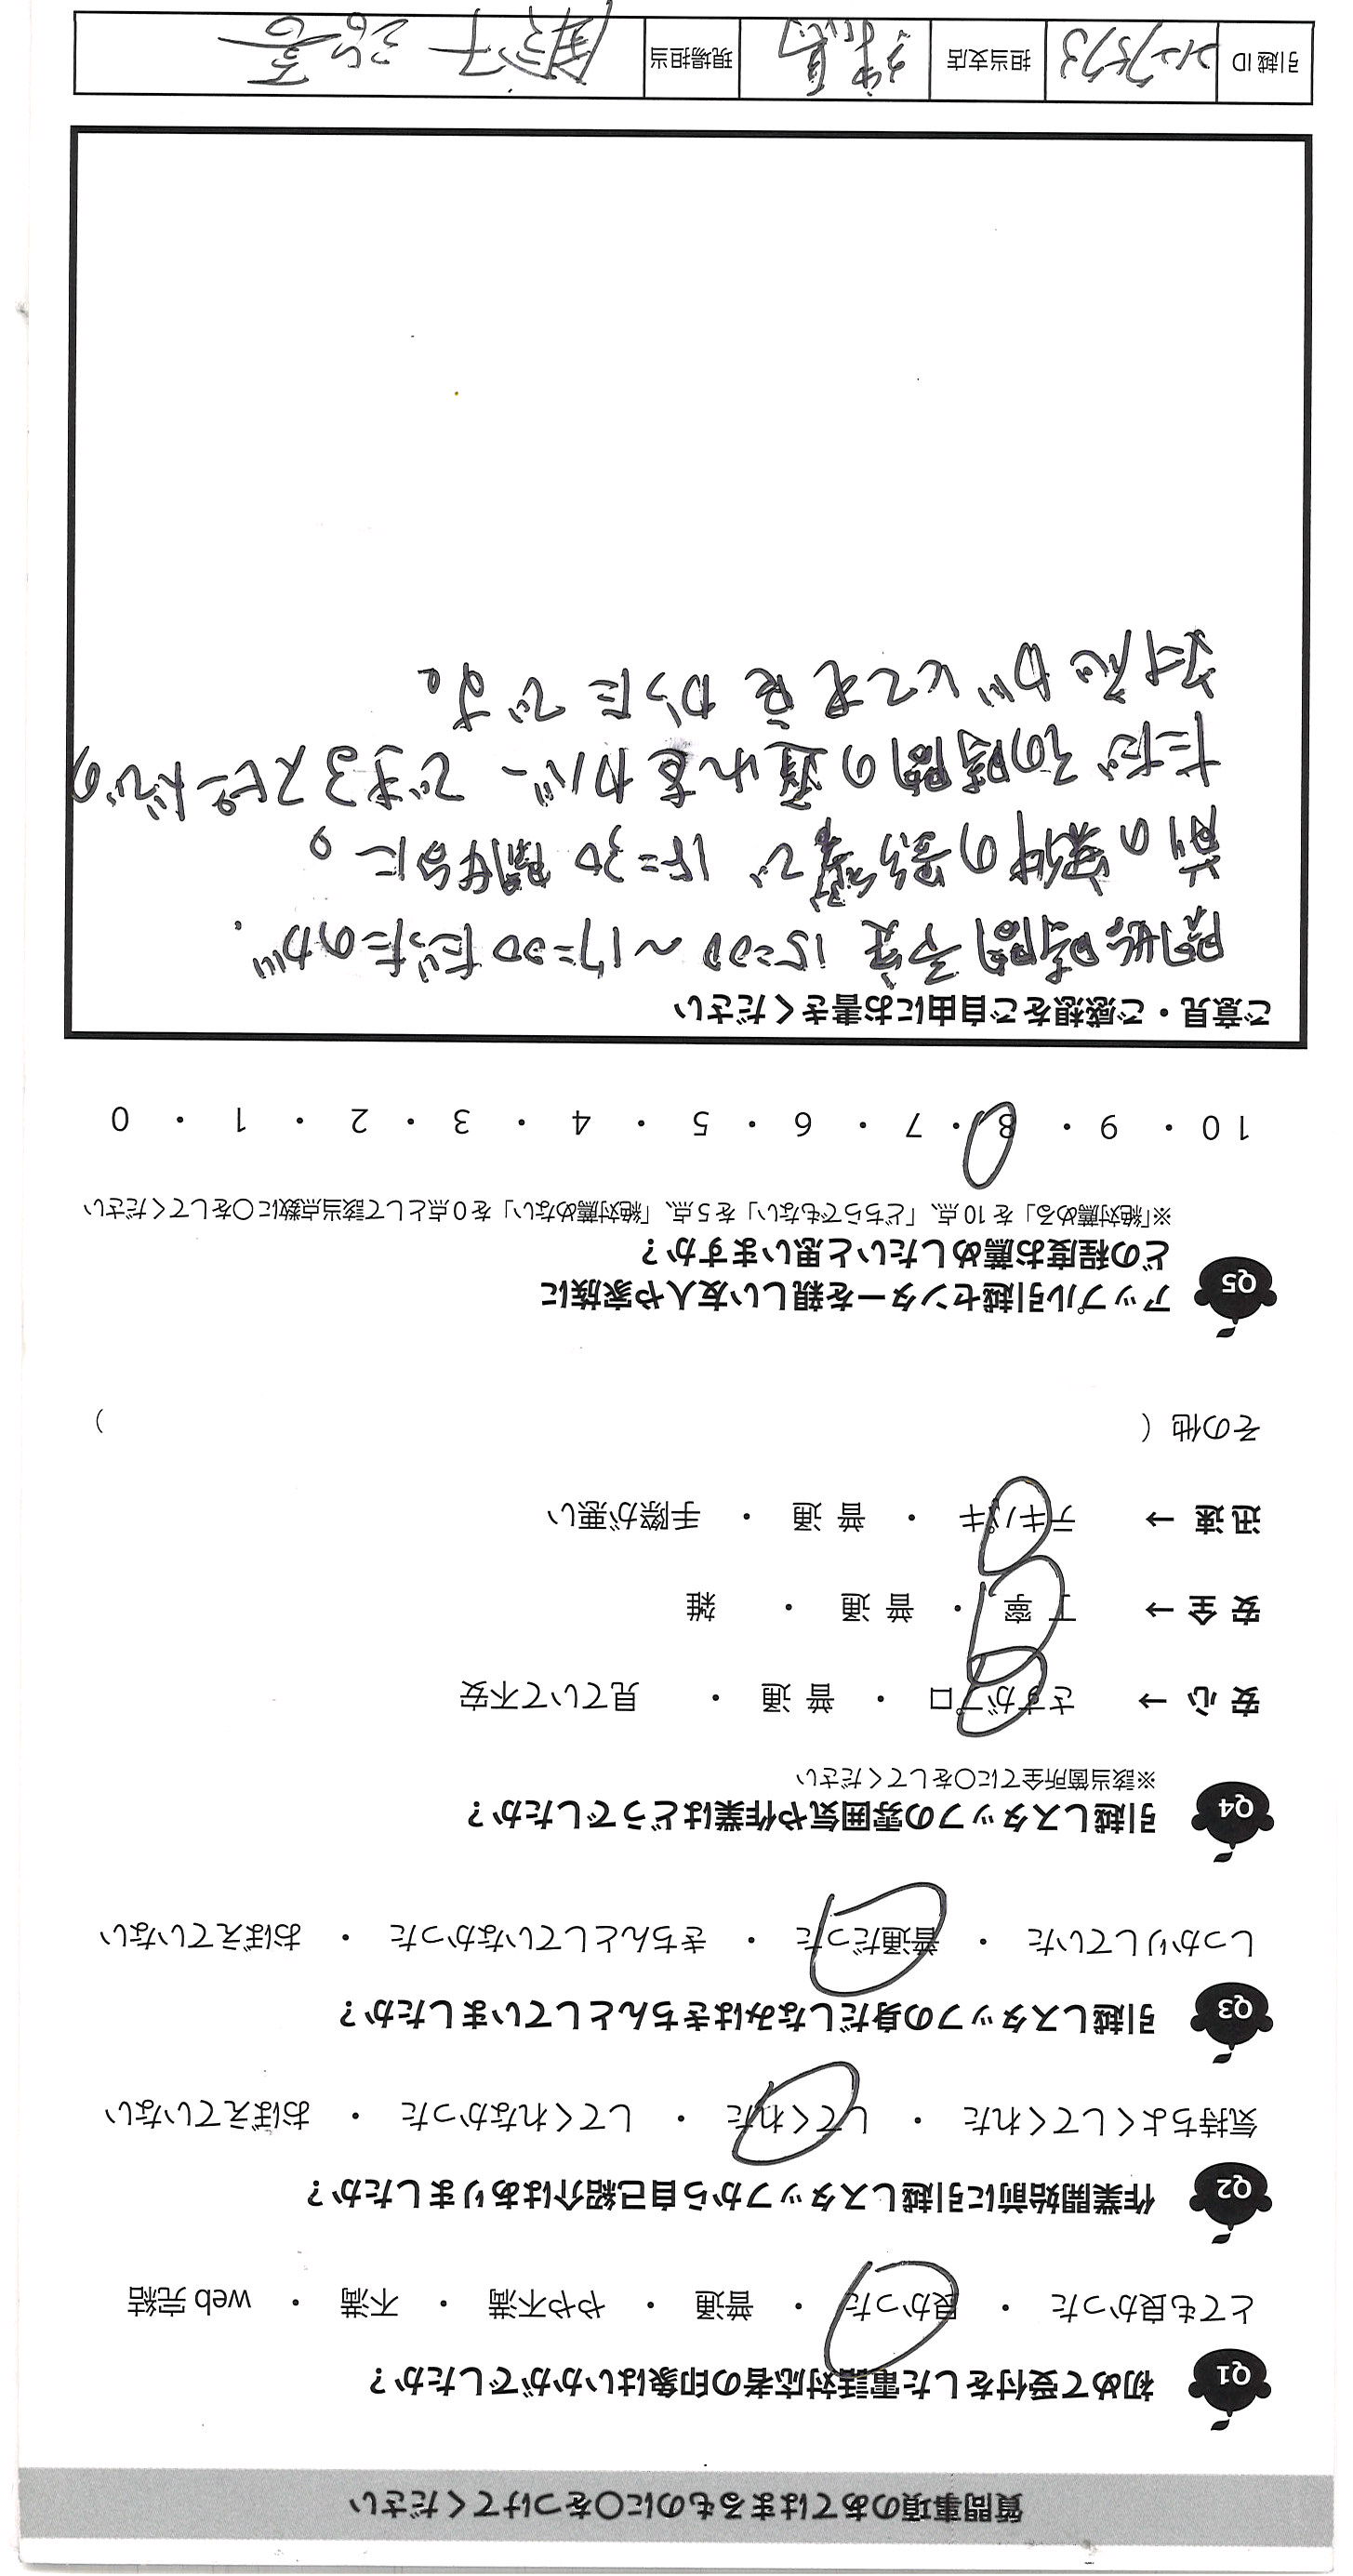 質問事項のあてはまるものに○をつけてください
Q1 初めて受付をした電話対応者の印象はいかがでしたか？
とても良かった ・ 良かった ・ 普通 ・ やや不満 ・ 不満 ・ web 完結
Q2 作業開始前に引越しスタッフから自己紹介はありましたか？
気持ちよくしてくれた ・ してくれた ・ してくれなかった ・ おぼえていない
Q3 引越しスタッフの身だしなみはきちんとしていましたか？
しっかりしていた ・ 普通だった ・ きちんとしていなかった ・ おぼえていない
Q4 引越しスタッフの雰囲気や作業はどうでしたか？
※該当箇所全てに○をしてください
安 心 → さすがプロ ・ 普 通 ・ 見ていて不安
安 全 → 丁 寧 ・ 普 通 ・ 雑
迅 速 → テキパキ ・ 普 通 ・ 手際が悪い
その他（ ）
Q5 アップル引越センターを親しい友人や家族に
どの程度お薦めしたいと思いますか？
※「絶対薦める」を 10 点、「どちらでもない」を 5 点、「絶対薦めない」を 0 点として該当点数に○をしてください
10 ・ 9 ・ 8 ・ 7 ・ 6 ・ 5 ・ 4 ・ 3 ・ 2 ・ 1 ・ 0
ご意見・ご感想をご自由にお書きください
開始時間予定 15:00〜17:00だったのが、
前の案件の影響で 15:30 開始に。
ただその時間の遅れをカバーできるスピードでの
対応がとても良かったです。
引越 ID 2127573 担当支店 練馬 現場担当